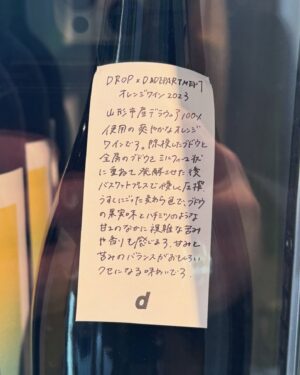 DROP × D&DEPARTMENT
オレンジワイン 2023
山形市産デラウェア100%
使用の爽やかなオレンジ
ワインです。除梗したブドウと
全房のブドウとミルフィーユ状
に重ねて発酵させた後
バスケットプレスで優しく圧搾
うすくにごった柔らかな色で、ブドウ
の果実味とハチミツのような
甘さのなかに複雑な苦み
や香りも感じる。甘みと
苦みのバランスがおもしろい
クセになる味わいです。
d